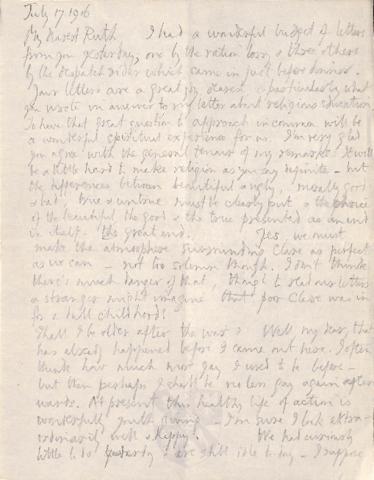 July 17 1916
My dearest Ruth I had a wonderful budget of letters
from you yesterday, one by the ration lorry & three others
by the despatch rider which came in just before dinner.
Your letters are a great joy dearest & particularly what
you wrote in answer to my letter about religious education
To have that great question to approach in common will be
a wonderful spiritual experience for us. I'm very glad
you agree with the general tenour of my remarks. It will
be a little hard to make religion as you say definite - but
the differences between beautiful & ugly, morally good
& bad, true & untrue must be clearly put & the choice
of the beautiful the good & the true presented as an end
in itself - the great end. Yes, we must
make the atmosphere surrounding Clare as perfect
as we can - not too solemn though. I don't think
there's much danger of that, though to read our letters
a stranger might imagine that poor Clare was in
for a dull childhood!
Shall I be older after the war? Well my dear, that
has already happened before I came out here. I often
think how much more gay I used to be before -
but then perhaps I shall be no less gay again after-
wards. At present this healthy life of action is
wonderfully youth giving - I'm sure I look extra-
ordinarily well & happy! We had curiously
little to do yesterday & are still idle to-day - I suppose